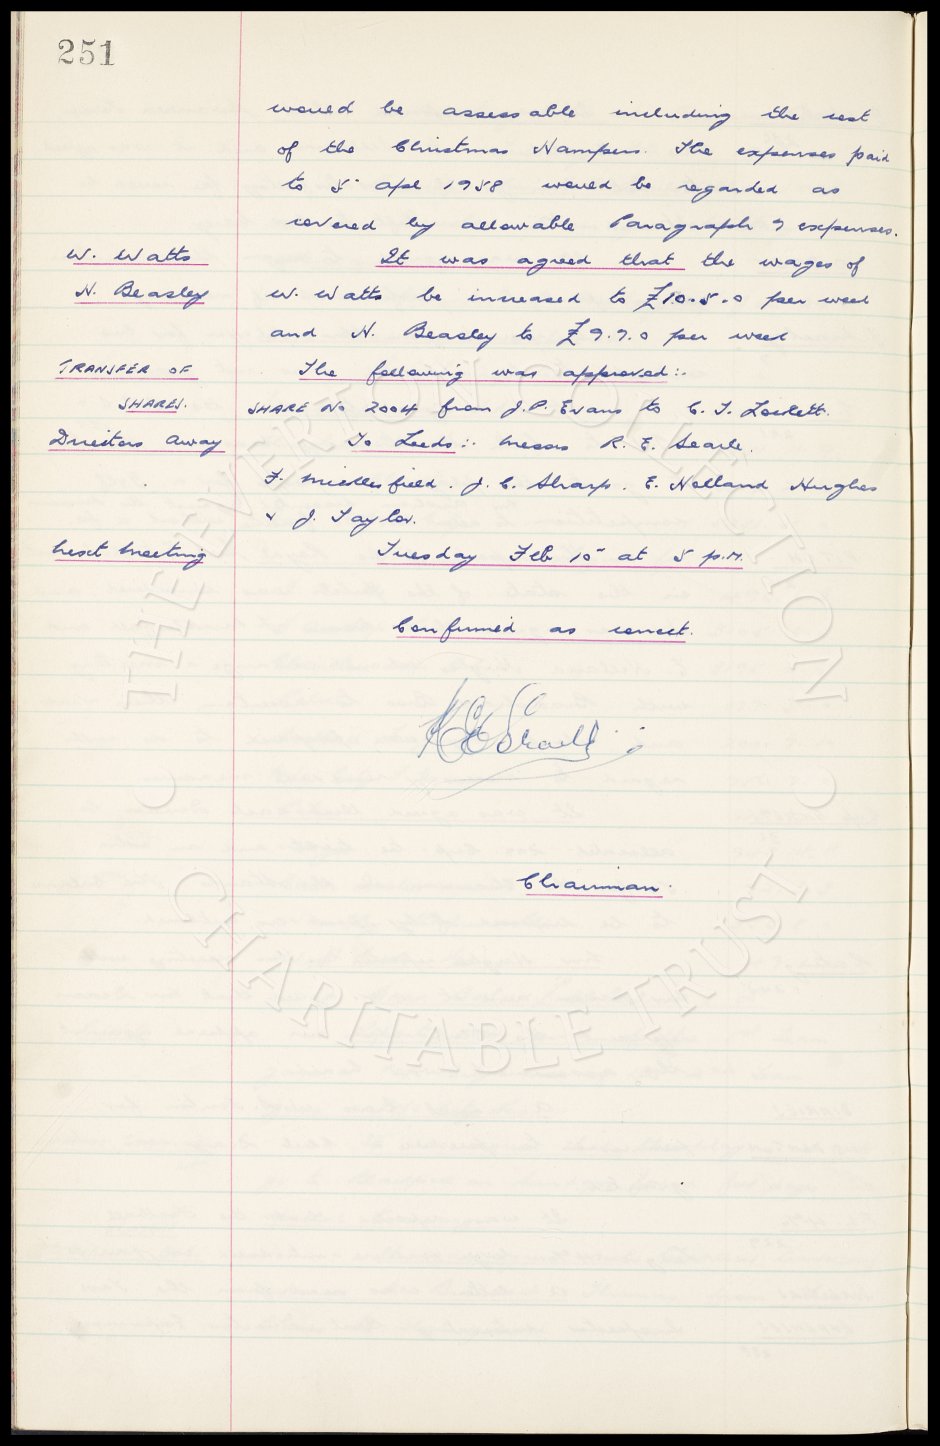 251
would be assessable including the cost
of the Christmas Hampers. The expenses paid
to 5 Apl 1958 would be regarded as
covered by allowable Paragraph 7 expenses.
W. Watts It was agreed that the wages of
H. Beasley W. Watts be increased to £10.5.0 per week
and H. Beasley to £9.9.0 per week
TRANSFER OF The following was approved:-
SHARES. SHARE No 2004 from J.P. Evans to C. T. Lockett.
Directors away To Leeds:- Messrs R. E. Searle.
F. Micklesfield. J. C. Sharp. E. Holland Hughes
& J. Taylor.
Next Meeting Tuesday Feb 10 at 5 p.m.
Confirmed as correct.
Chairman.
THE EVERTON COLLECTION
CHARITABLE TRUST